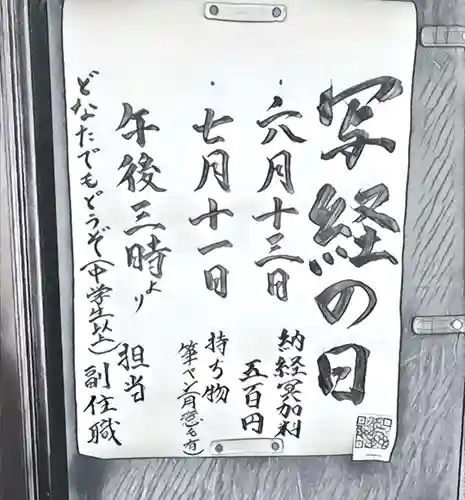 写経の日
・六月十三日
・七月十一日
午後三時より
納経冥加料
五百円
持ち物
筆ペン
担当
副住職
どなたでもどうぞ(中学生以上)